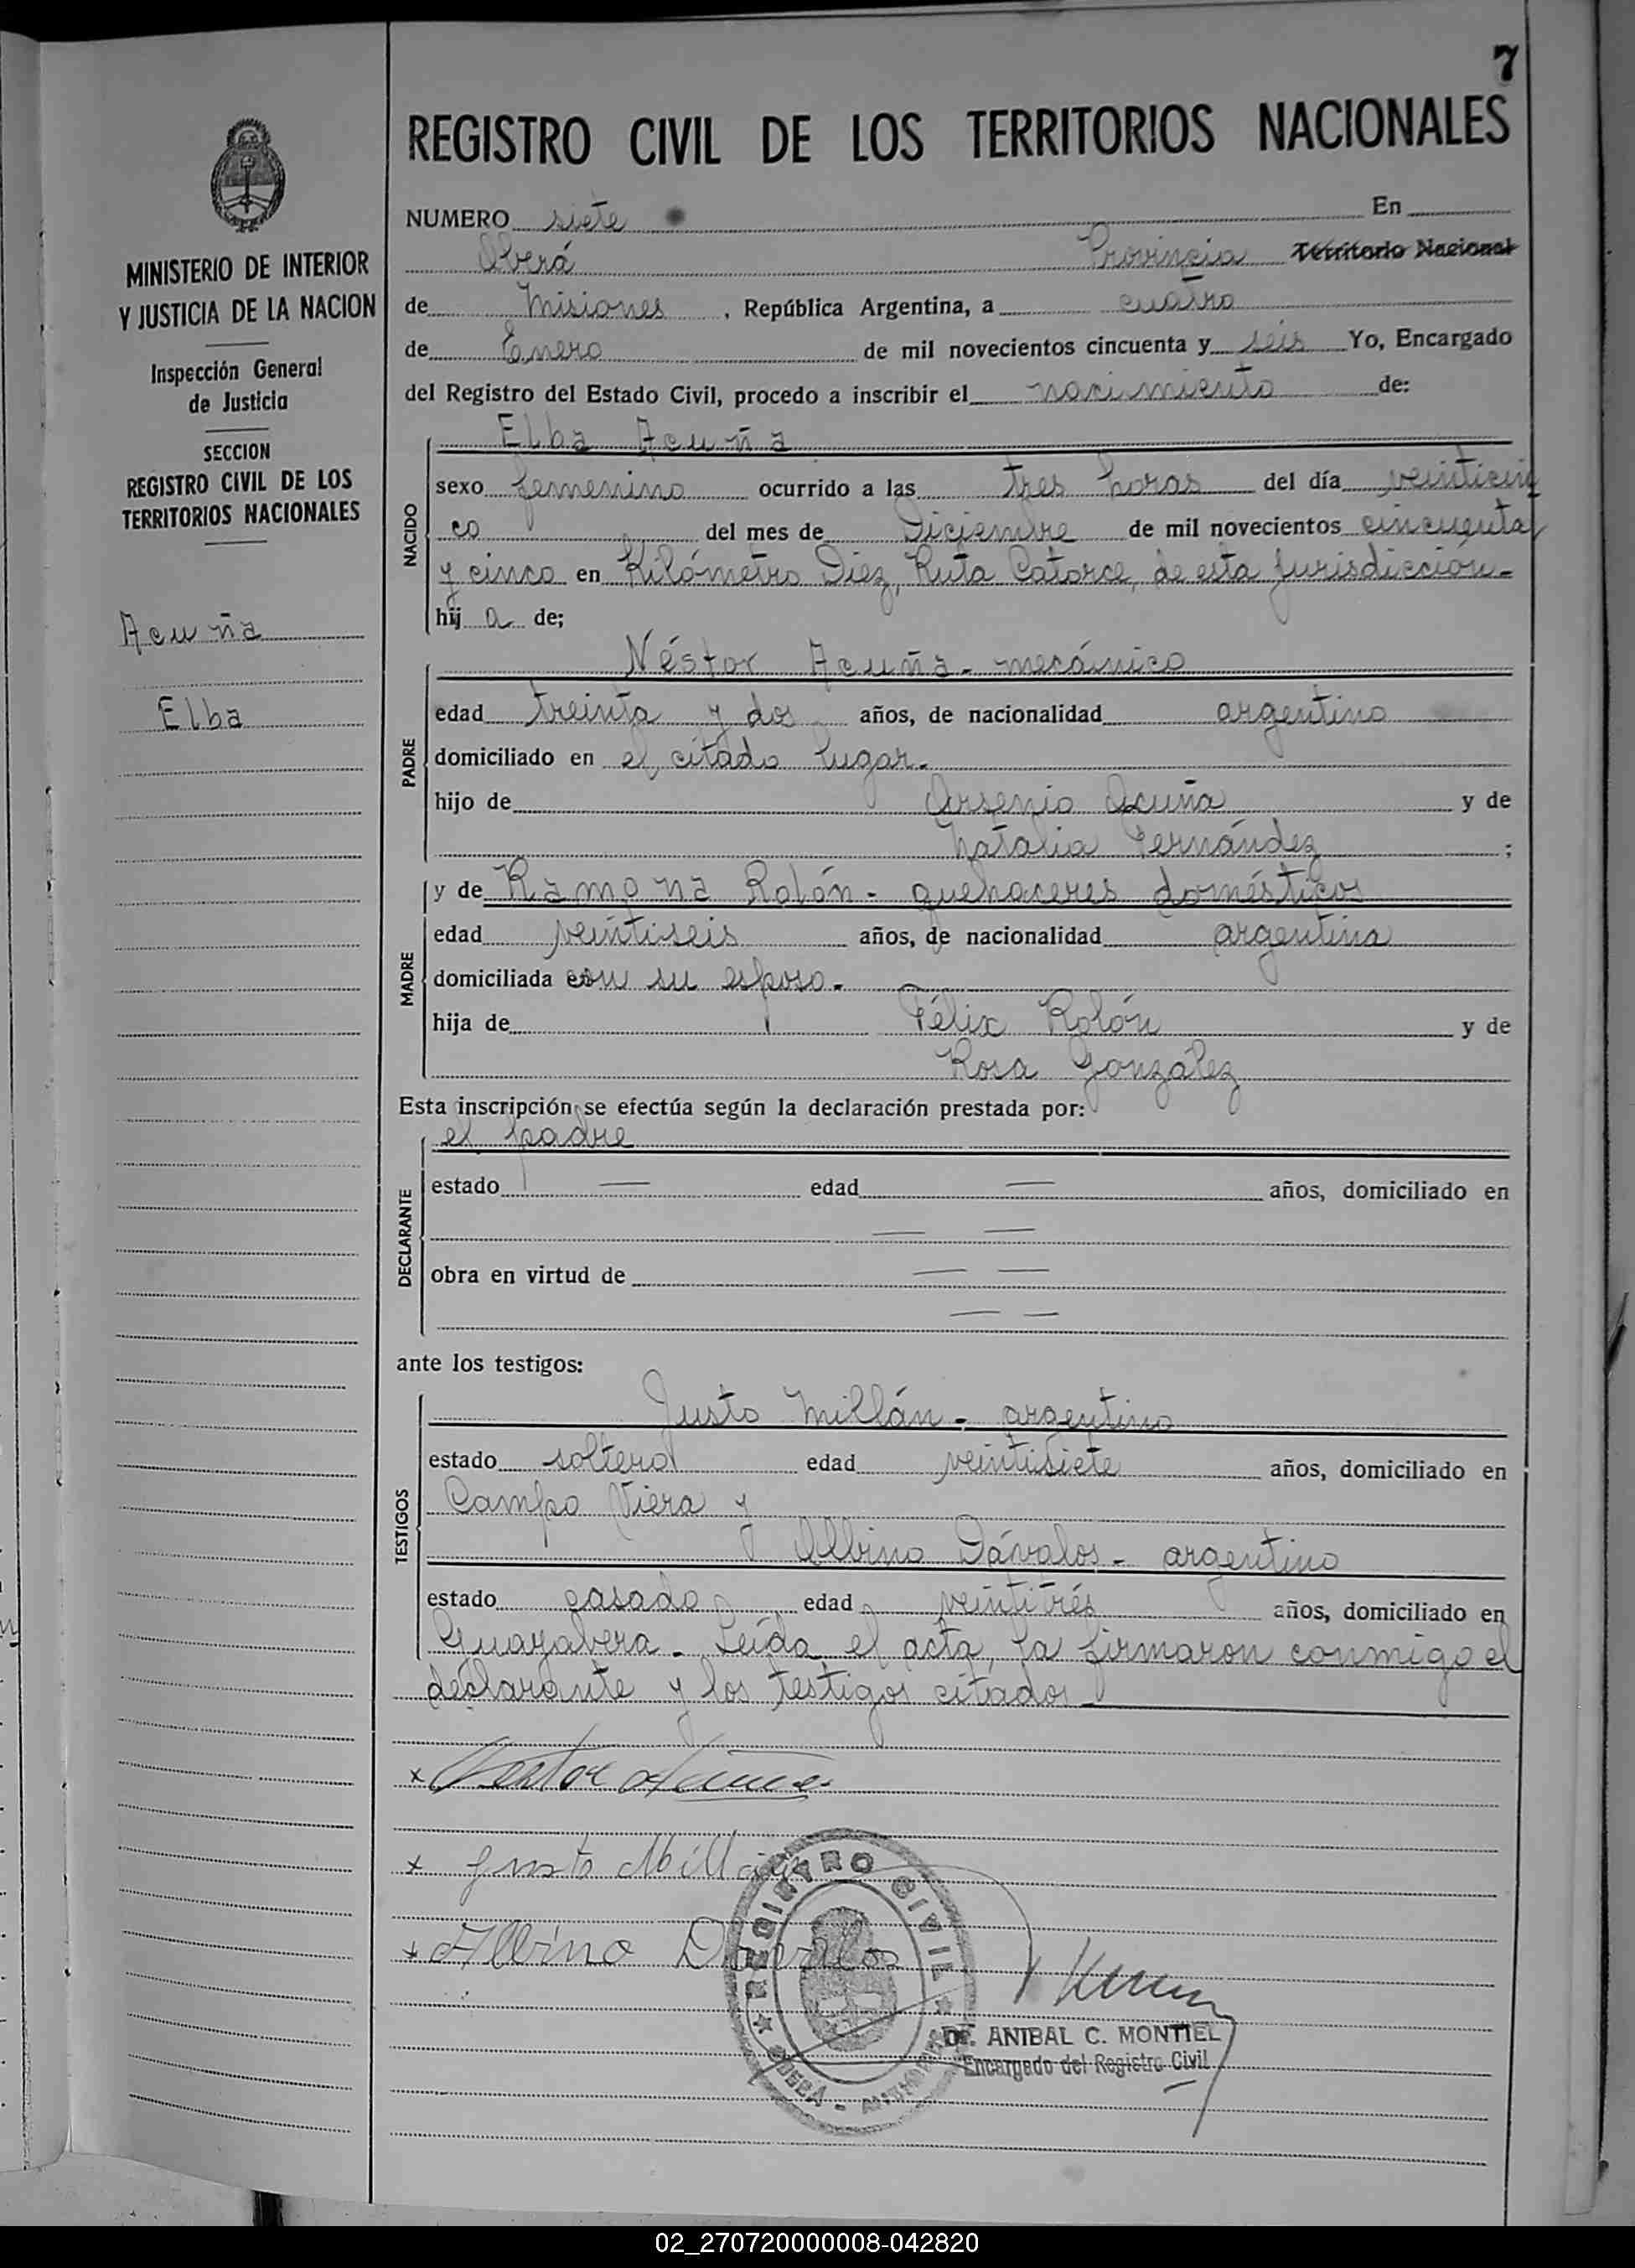 7
REGISTRO CIVIL DE LOS TERRITORIOS NACIONALES
NUMERO siete En
Oberá Provincia Territorio Nacional
de Misiones, República Argentina, a cuatro
de Enero de mil novecientos cincuenta y seis Yo, Encargado
del Registro del Estado Civil, procedo a inscribir el nacimiento de:
NACIDO
Elba Acuña
sexo femenino ocurrido a las tres horas del día veinticin
co del mes de Diciembre de mil novecientos cincuenta
y cinco en Kilómetro Diez, Ruta Catorce, de esta jurisdicción.-
hij a de;
PADRE
Néstor Acuña - mecánico
edad treinta y dos años, de nacionalidad argentino
domiciliado en el citado lugar.
hijo de Arsenio Acuña y de
Natalia Fernández ;
MADRE
y de Ramona Rolón - quehaceres domésticos
edad veintiseis años, de nacionalidad argentina
domiciliada con su esposo.
hija de Félix Rolón y de
Rosa González
Esta inscripción se efectúa según la declaración prestada por:
DECLARANTE
el padre
estado — edad — años, domiciliado en
— —
obra en virtud de — —
— —
ante los testigos:
TESTIGOS
Justo Millán - argentino
estado soltero edad veintisiete años, domiciliado en
Campo Viera y
Albino Dávalos - argentino
estado casado edad veintitrés años, domiciliado en
Guarabera - Leída el acta, la firmaron conmigo el
declarante y los testigos citados
x Nestor Acuña
x Justo Millán
x Albino Davalos
REGISTRO CIVIL
Dr. ANIBAL C. MONTIEL
Encargado del Registro Civil
MINISTERIO DE INTERIOR
Y JUSTICIA DE LA NACION
Inspección General
de Justicia
SECCION
REGISTRO CIVIL DE LOS
TERRITORIOS NACIONALES
Acuña
Elba
02_270720000008-042820